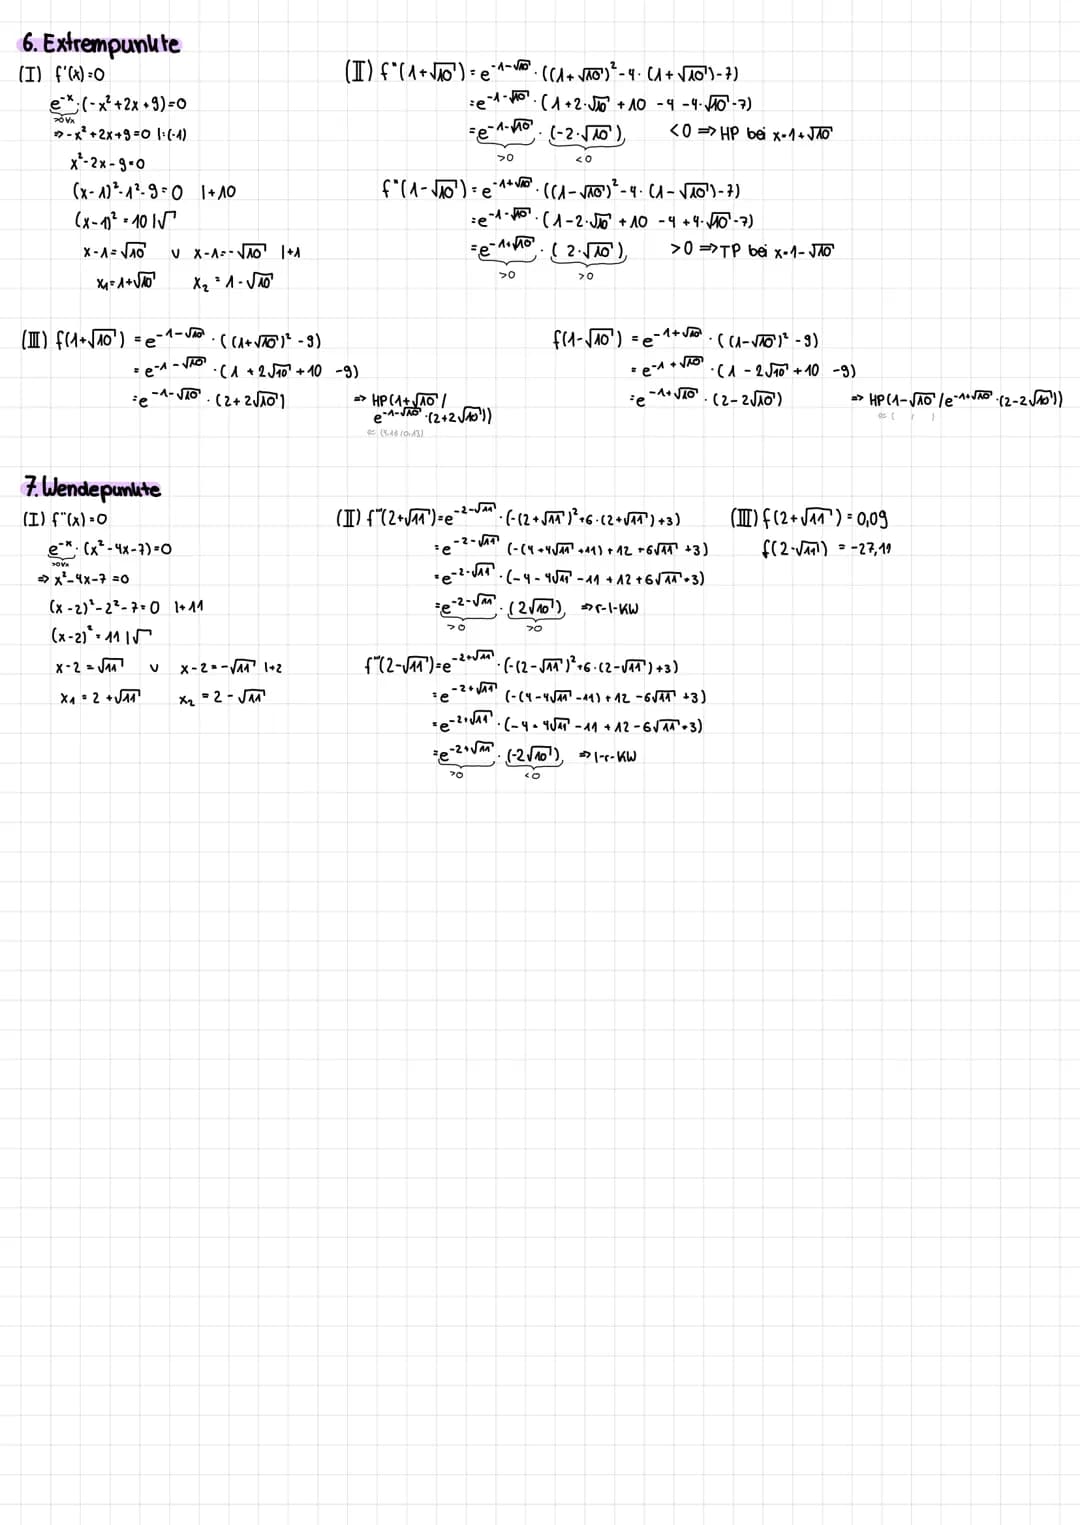 6. Extrempunkte
(I) f'(x)=0
e^-x·(-x²+2x+9)=0
>0∀x
⇒-x²+2x+9=0 |:(-1)
x²-2x-9=0
(x-1)²-1²-9=0 |+10
(x-1)²=10 |√
x-1=√10 ∨ x-1=-√10 |+1
x₁=1+√10 x₂=1-√10
(II) f"(1+√10)=e^-1-√10·((1+√10)²-4·(1+√10)-7)
=e^-1-√10·(1+2·√10+10-4-4·√10-7)
=e^-1-√10·(-2·√10) <0 ⇒ HP bei x=1+√10
>0 <0
f"(1-√10)=e^-1+√10·((1-√10)²-4·(1-√10)-7)
=e^-1-√10·(1-2·√10+10-4+4·√10-7)
=e^-1+√10·(2·√10) >0 ⇒TP bei x=1-√10
>0 >0
(III) f(1+√10)=e^-1-√10·((1+√10)²-9)
=e^-1-√10·(1+2√10+10-9)
=e^-1-√10·(2+2√10) ⇒ HP(1+√10/
e^-1-√10·(2+2√10))
≈(4.16/0.13)
f(1-√10)=e^-1+√10·((1-√10)²-9)
=e^-1+√10·(1-2√10+10-9)
=e^-1+√10·(2-2√10) ⇒ HP(1-√10/e^-1+√10·(2-2√10))
≈( / )
7. Wendepunkte
(I) f"(x)=0
e^-x·(x²-4x-7)=0
>0∀x
⇒x²-4x-7=0
(x-2)²-2²-7=0 |+11
(x-2)²=11 |√
x-2=√11 ∨ x-2=-√11 |+2
x₁=2+√11 x₂=2-√11
(II) f'''(2+√11)=e^-2-√11·(-(2+√11)²+6·(2+√11)+3)
=e^-2-√11(-(4+4√11+11)+12+6√11+3)
=e^-2-√11·(-4-4√11-11+12+6√11+3)
=e^-2-√11·(2√10) ⇒r-l-KW
>0 >0
f'''(2-√11)=e^-2+√11·(-(2-√11)²+6·(2-√11)+3)
=e^-2+√11(-(4-4√11-11)+12-6√11+3)
=e^-2+√11·(-4+4√11-11+12-6√11+3)
=e^-2+√11·(-2√10) ⇒l-r-KW
>0 <0
(III) f(2+√11)=0,09
f(2-√11)=-27,19